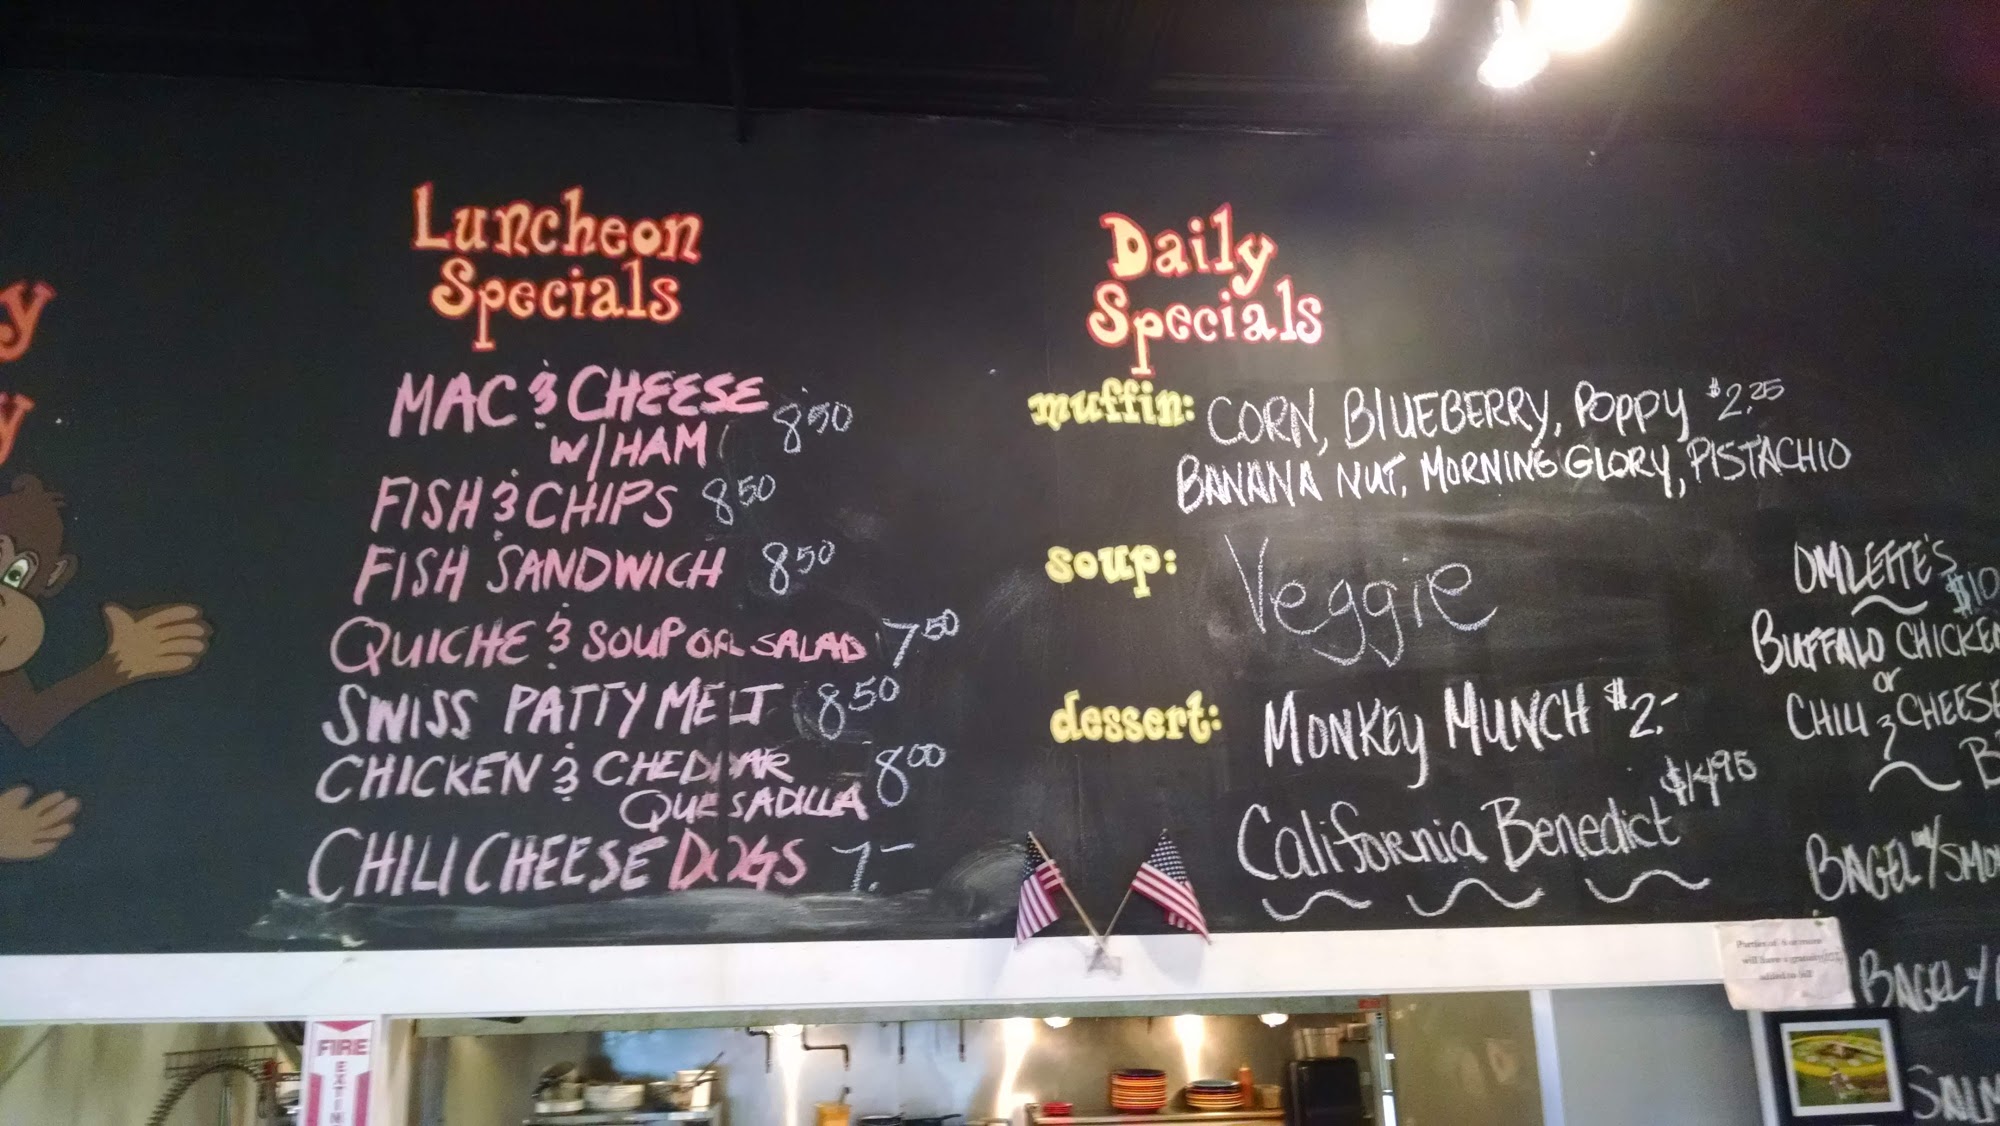 Luncheon
Specials
MAC & CHEESE
W/ HAM 8.50
FISH & CHIPS 8.50
FISH SANDWICH 8.50
QUICHE & SOUP OR SALAD 7.50
SWISS PATTY MELT 8.50
CHICKEN & CHEDDAR
QUESADILLA 8.00
CHILI CHEESE DOGS 7.-
Daily
Specials
muffin: CORN, BLUEBERRY, POPPY $2.25
BANANA NUT, MORNING GLORY, PISTACHIO
soup: Veggie
dessert: MONKEY MUNCH $2.-
California Benedict $14.95
OMLETTE'S
$10
BUFFALO CHICKEN
or
CHILI & CHEESE
BAGEL W/ SMO
Parties of 6 or more
will have a gratuity
added to bill
BAGEL W/
SALM
FIRE
EXTIN
y
y